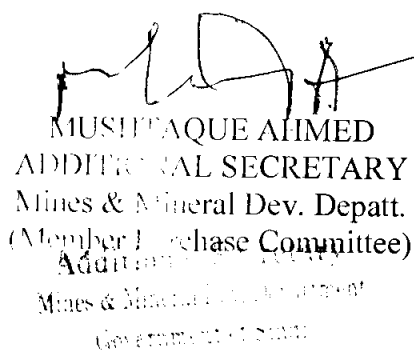 MUSHTAQUE AHMED
ADDITIONAL SECRETARY
Mines & Mineral Dev. Depatt.
(Member Purchase Committee)
Additional Secretary
Mines & Mineral Development
Government of Sindh